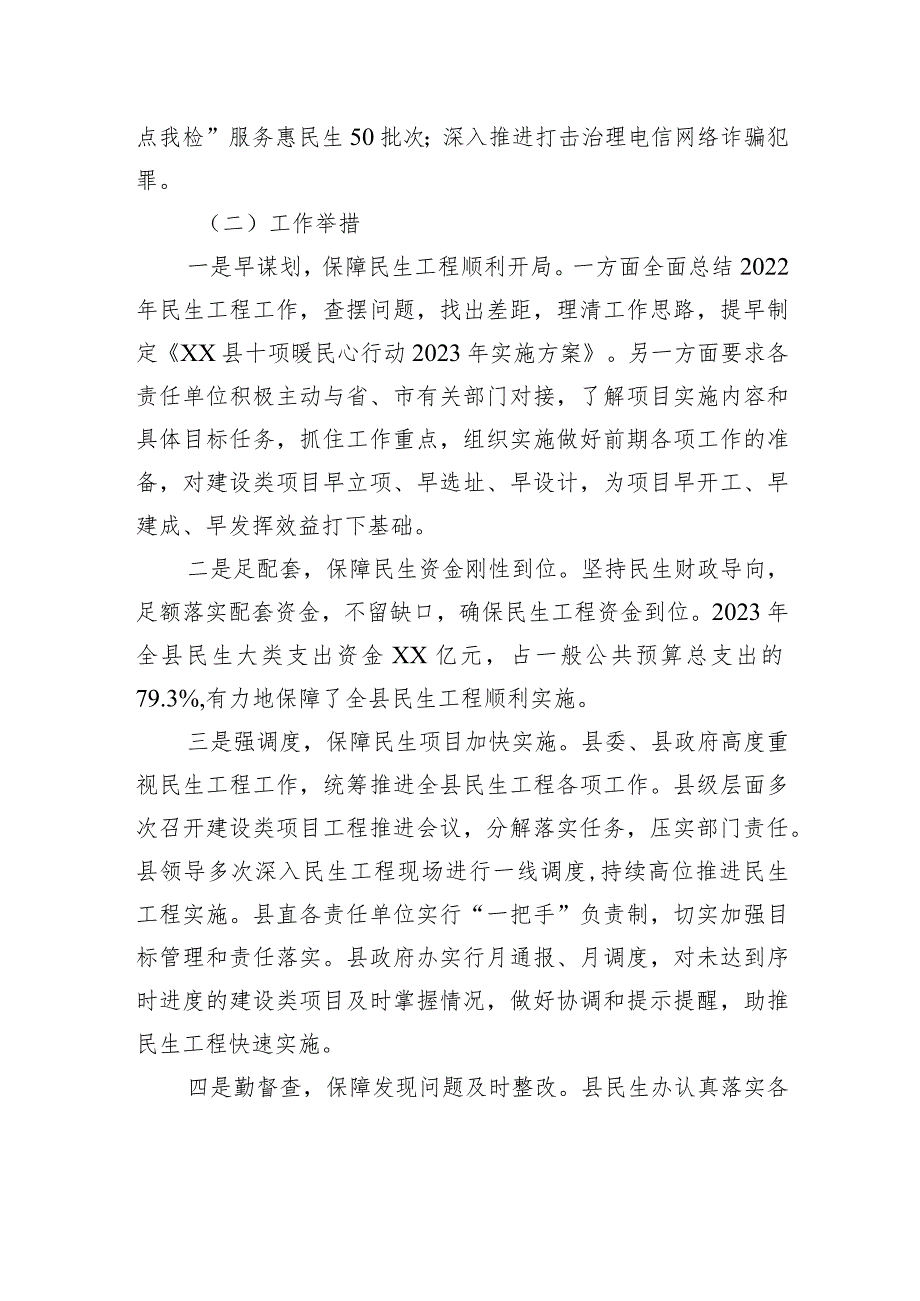 点我检”服务惠民生50批次；深入推进打击治理电信网络诈骗犯
罪。
（二）工作举措
一是早谋划，保障民生工程顺利开局。一方面全面总结2022
年民生工程工作，查摆问题，找出差距，理清工作思路，提早制
定《XX县十项暖民心行动2023年实施方案》。另一方面要求各
责任单位积极主动与省、市有关部门对接，了解项目实施内容和
具体目标任务，抓住工作重点，组织实施做好前期各项工作的准
备，对建设类项目早立项、早选址、早设计，为项目早开工、早
建成、早发挥效益打下基础。
二是足配套，保障民生资金刚性到位。坚持民生财政导向，
足额落实配套资金，不留缺口，确保民生工程资金到位。2023年
全县民生大类支出资金XX亿元，占一般公共预算总支出的
79.3%,有力地保障了全县民生工程顺利实施。
三是强调度，保障民生项目加快实施。县委、县政府高度重
视民生工程工作，统筹推进全县民生工程各项工作。县级层面多
次召开建设类项目工程推进会议，分解落实任务，压实部门责任。
县领导多次深入民生工程现场进行一线调度,持续高位推进民生
工程实施。县直各责任单位实行“一把手”负责制，切实加强目
标管理和责任落实。县政府办实行月通报、月调度，对未达到序
时进度的建设类项目及时掌握情况，做好协调和提示提醒，助推
民生工程快速实施。
四是勤督查，保障发现问题及时整改。县民生办认真落实各